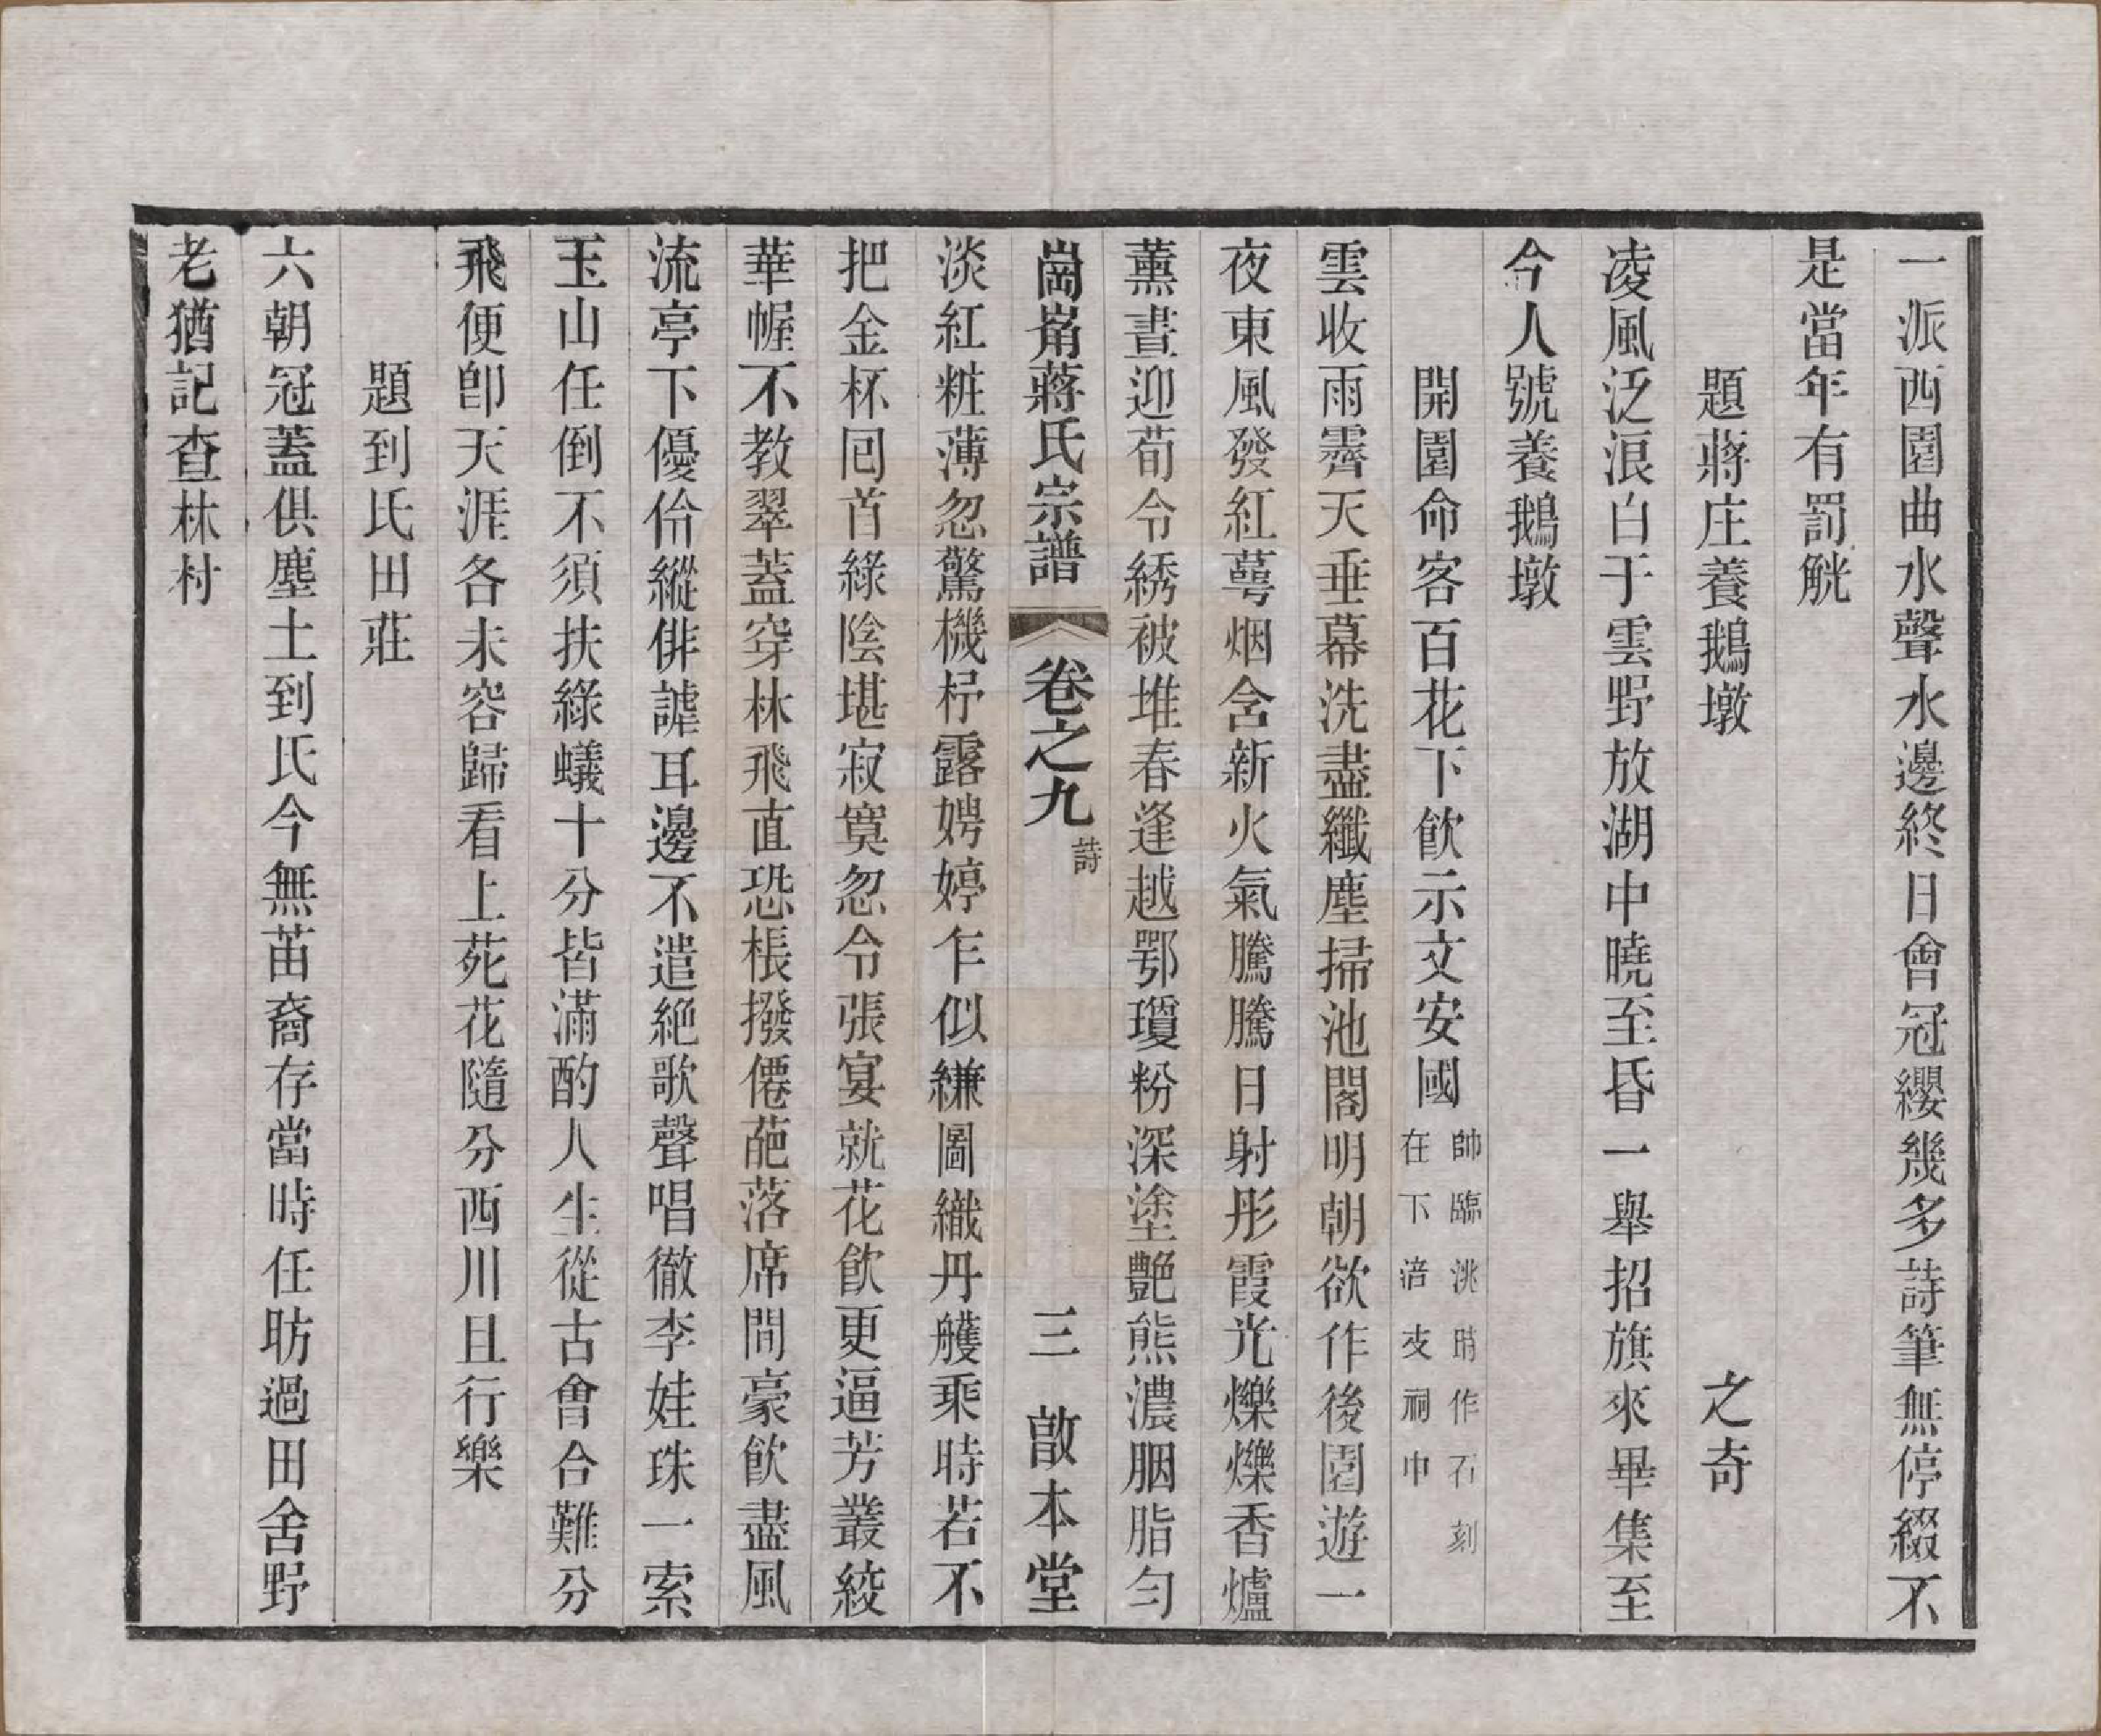 一派西園曲水聲水邊終日會冠纓幾多詩筆無停綴不
是當年有罰觥
題蔣庄養鵝墩
之奇
凌風泛浪白于雲野放湖中曉至昏一舉招旗來畢集至
今人號養鵝墩
開園命客百花下飲示文安國
帥臨洮時作石刻
在下涪攴祠中
雲收雨霽天垂幕洗盡纖塵掃池閣明朝欲作後園遊一
夜東風發紅萼烟含新火氣騰騰日射彤霞光爍爍香爐
薰晝迎荀令綉被堆春逢越鄂瓊粉深塗艷態濃胭脂勻
崗崗蔣氏宗譜
卷之九
詩
三
啟本堂
淡紅粧薄忽驚機杼露娉婷乍似縑圖織丹艧乘時若不
把金杯囘首綠陰堪寂寞忽令張宴就花飲更逼芳叢綾
華幄不教翠蓋穿林飛直恐棖撥僊葩落席間豪飲盡風
流亭下優伶縱俳謔耳邊不遣絕歌聲唱徹李娃珠一索
玉山任倒不須扶綠蟻十分皆滿酌人生從古會合難分
飛便卽天涯各未容歸看上苑花隨分西川且行樂
題到氏田莊
六朝冠蓋俱塵土到氏今無苗裔存當時任昉過田舍野
老猶記查林村